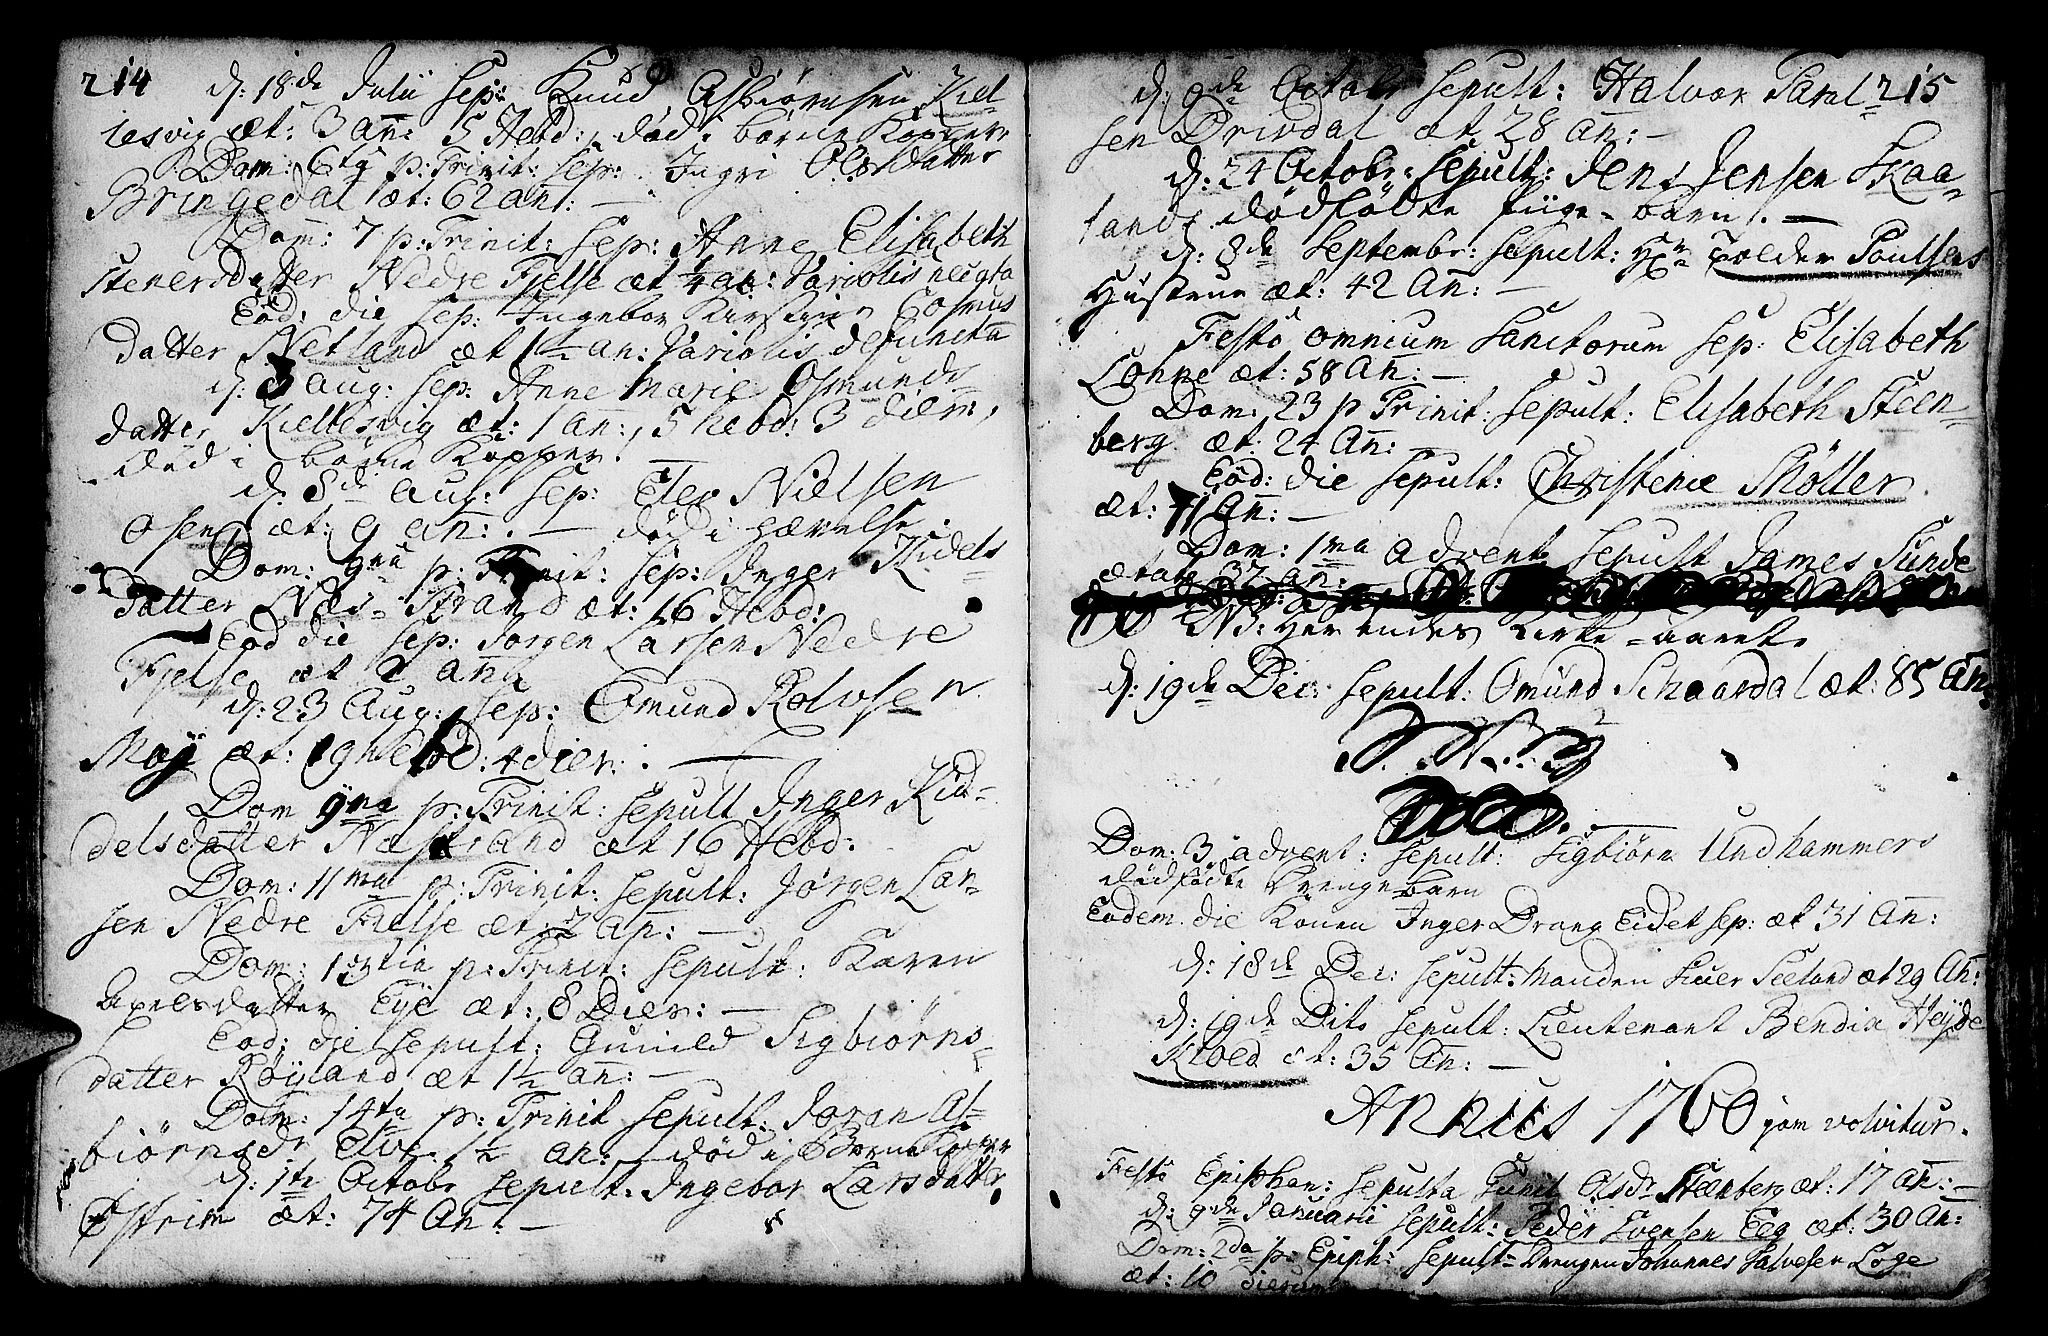 214
d: 18de Julii sep: Knud Asbiørnsen Kiel-
lesvig æt: 3 an: 5 Hebd:, død i børne Kopper
Dom: 6tq p: Trinit: sep: Ingri Olsdatter
Bringedal æt: 62 an: —
Dom: 7 p: Trinit: sep: Anne Elisabeth
Stenersdatter Nedre Fjelse æt 1/4 an: Variolis
Eod: die sep: Ingebor Kirstine Osmus
datter Netland æt 1 1/2 an: Variolis defuncta
d: 3 aug: sep: Anne Marie Osmunds
datter Kiellesvig æt: 1 an:, 5 hebd: 3 diem,
død i børne Kopper. —
d. 8de Aug: sep: Eler Nielsen
Osen æt: 9 an: . — død i hævelse.
Dom: 9na p: Trinit: sep: Inger Kidels
datter Næs-Strand æt: 16 Hebd:
Eod die sep: Jørgen Larsen Nedre
Fjelse æt 2 an:
d: 23 Aug: sep: Omund Rolvsen
Møy æt: 19 Hebd: 4 dier: . —
Dom 9na p: Trinit: sepult Inger Kid-
delsdatter Nastrand æt 16 Hebd:
Dom: 11ma p: Trinit: sepult: Jørgen Lar-
sen Nedre Fielse æt 2 an: —
Dom: 13tia p: Trinit: sepult: Karen
Axelsdatter Eye æt: 8 Dier: —
Eod: die sepult: Gunild Sigbiørns-
datter Røyland æt 1 1/2 an: —
Dom: 14ta p: Trinit sepult: Joran As-
biørnsdr Elve 1 1/2 an: — død i Børne Kopper
d: 1te Octobr sepult: Ingebor Larsdatter
Østrim æt: 74 An: —
215
d: 9de Octobr sepult: Halvor Paul-
sen Drivdal æt 28 an: —
d: 24 Octobr: sepult: Jens Jensen Skaa-
lands dødfødte piige-barn. —
d: 8de Septembr: sepult: Hr Peder Poulsens
Hustrue æt: 42 An: —
Festo omnium Sanctorum sep: Elisabeth
Lohne æt: 58 An: —
Dom: 23 p Trinit: sepult: Elisabeth Steen-
berg æt: 24 An:
Eod: die sepult: Christence Møller
æt: 71 An: —
Dom: 1ma advent sepult James Sunde
ætat: 37 an: —
NB: Her endes Kirke-aaret.
d: 19de Dec: sepult: Omund Schaardal æt: 85 An:
Dom: 3 advent: sepult: Sigbiørn Undhammers
dødfødte Drengebarn
Eodem die Konen Inger Drang Eidet sep: æt 31 An:
d: 18de Dec: sepult: Manden Siver Seeland æt 29 An:
d: 19de Dito sepult: Lieutenant Bendix Heyde
Kloed æt: 35 An: —
Annus 1760 jam volvitur.
Festo Epiphan: sepulta Gunil Olsdr Steenberg æt: 17 An: —
d: 9de Januarii sepult: Peder Evensen Eeg æt: 30 An:
Dom: 2da p: Epiph: sepult- Drengen Johannes Salvesen Løge
æt: 10 dierum